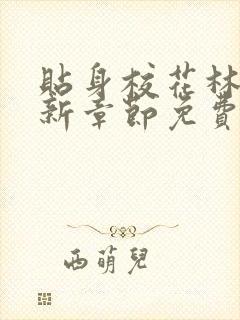 貼身校花林
新章節免費
西萌兒